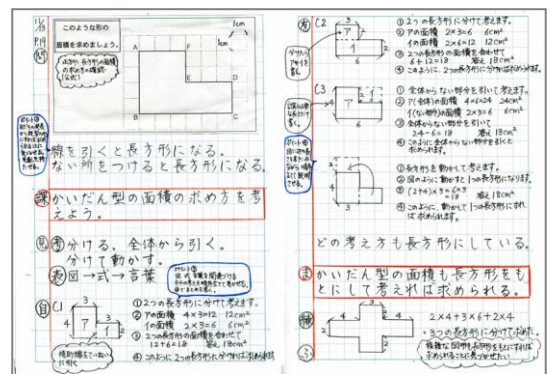 11/8
P.19
問
このような形の
面積を求めましょう。
1cm
1cm
正方形、長方形の面積
の求め方の確認
(公式)
A
F
E
D
B
C
線を引くと長方形になる。
ない所をつけると長方形になる。
課 かいだん型の面積の求め方を考
えよう。
見 考 分ける。全体から引く。
分けて動かす。
表 図→式→言葉
自 C1
3
4
ア
イ
2
3
補助線をていねい
に引く
① 2つの長方形に分けて考えます。
② アの面積 4×3=12 12cm²
イの面積 2×3=6 6cm²
③ 2つの長方形の面積を合わせて
12+6=18 答え 18cm²
④ このように2つの長方形に分ければ求められます
友 C2
3
2
ア
イ
2
6
① 2つの長方形に分けて考えます。
② アの面積 2×3=6 6cm²
イの面積 2×6=12 12cm²
③ 2つの長方形の面積を合わせて
6+12=18 答え 18cm²
④ このように、2つの長方形に分ければ求められます。
C3
3
4
6
① 全体からない部分を引いて考えます。
② ア(全体)の面積 4×6=24 24cm²
イ(ない部分)の面積 2×3=6 6cm²
③ 全体からない部分を引いて
24-6=18 答え 18cm²
④ このように全体からない部分を引くと
求められます。
① 長方形を動かして考えます。
② 図のように動かすと1つの長方形になります。
③ (2+4)×3=6×3
=18 答え 18cm²
④ このように、動かして1つの長方形にすれ
ば求められます。
どの考え方も長方形にしている。
ま かいだん型の面積も長方形をも
とにして考えれば求められる。
練
4
2×4+3×6+2×4
・3つの長方形に分けて求めた。
複雑な図形も長方形をもとにすれば
求められることに気づかせたい
ふ